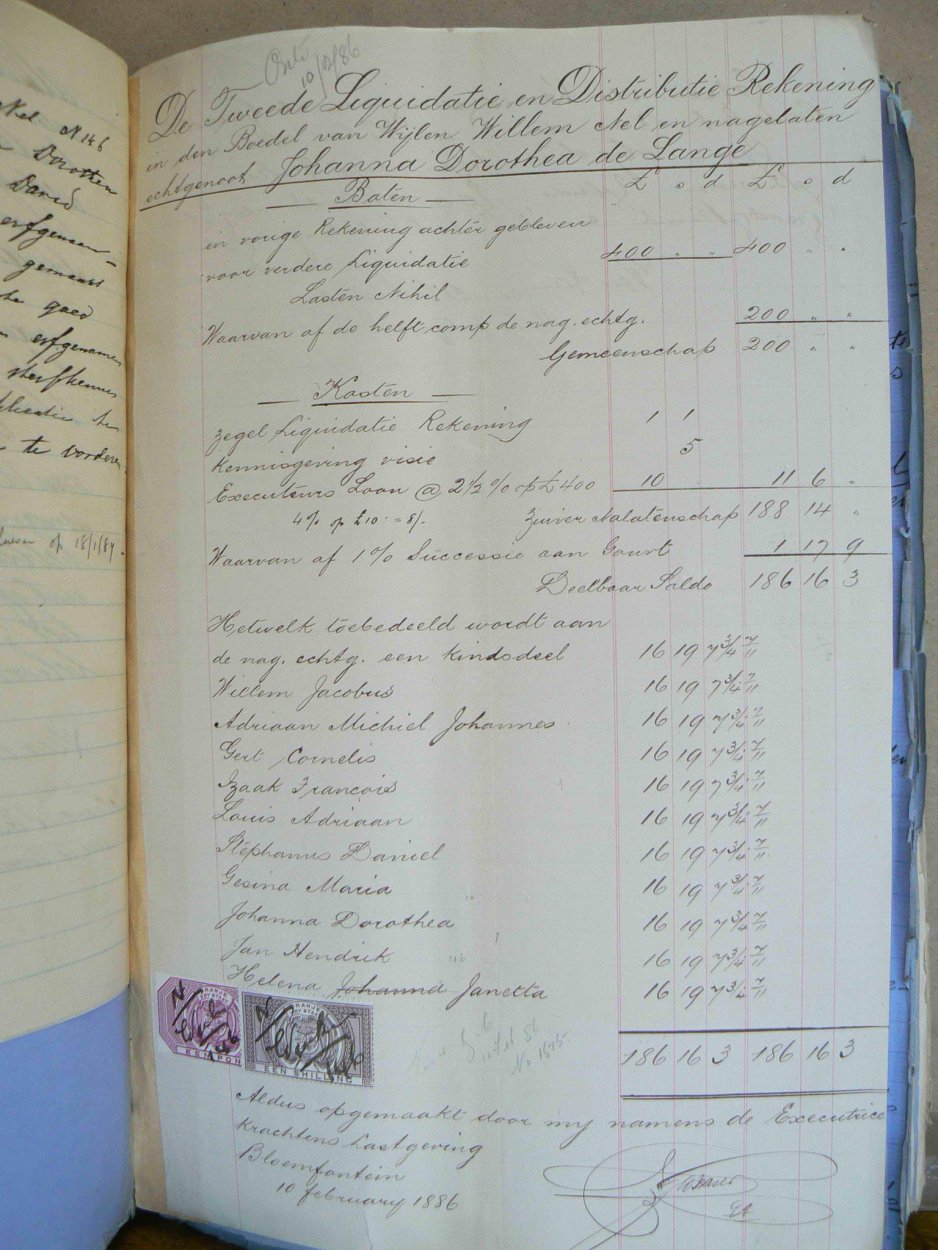 10/2/86
De Tweede Liquidatie en Distributie Rekening
in den Boedel van Wijlen Willem Nel en nagelaten
echtgenoot Johanna Dorothea de Lange
£ s d £ s d
Baten
in vorige Rekening achter gebleven
voor verdere Liquidatie 400 " " 400 "
Lasten Nihil
Waarvan af de helft comp de nag. echtg. 200 " "
Gemeenschap 200 " "
Kosten
Zegel Liquidatie Rekening 1 1
Kennisgeving visie 5
Executeurs Loon @ 2½ % op £400 10 11 6 "
4% op £10 = 8/- Zuiver Nalatenschap 188 14 "
Waarvan af 1% Successie aan Gouvt 1 17 9
Deelbaar Saldo 186 16 3
Hetwelk toebedeeld wordt aan
de nag. echtg. een Kindsdeel 16 19 7¾ 7/11
Willem Jacobus 16 19 7¾ 7/11
Adriaan Michiel Johannes 16 19 7¾ 7/11
Gert Cornelis 16 19 7¾ 7/11
Izaak Francois 16 19 7¾ 7/11
Louis Adriaan 16 19 7¾ 7/11
Stephanus Daniel 16 19 7¾ 7/11
Gesina Maria 16 19 7¾ 7/11
Johanna Dorothea 16 19 7¾ 7/11
Jan Hendrik 16 19 7¾ 7/11
Helena Johanna Janetta 16 19 7¾ 7/11
186 16 3 186 16 3
EEN SHILLING
Aldus opgemaakt door my namens de Executrice
Krachtens Lastgeving
Bloemfontein
10 february 1886
Nel N146
Dorothea
David
gemeent
goed
erfgenamen
te vorderen
op 18/1/84